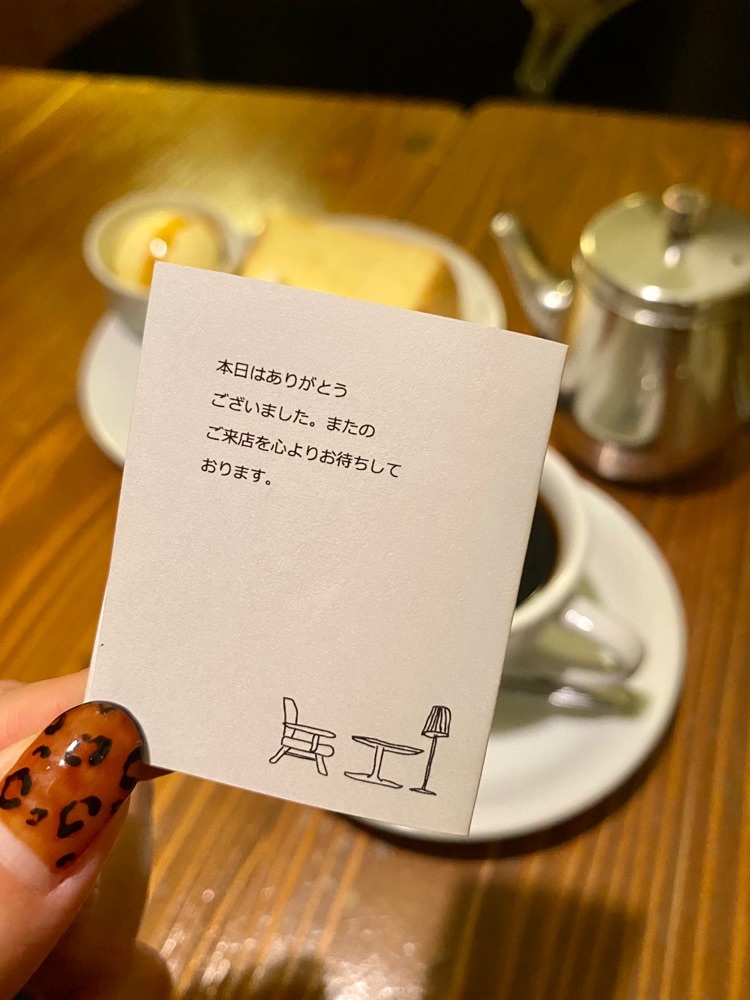 本日はありがとう
ございました。またの
ご来店を心よりお待ちして
おります。